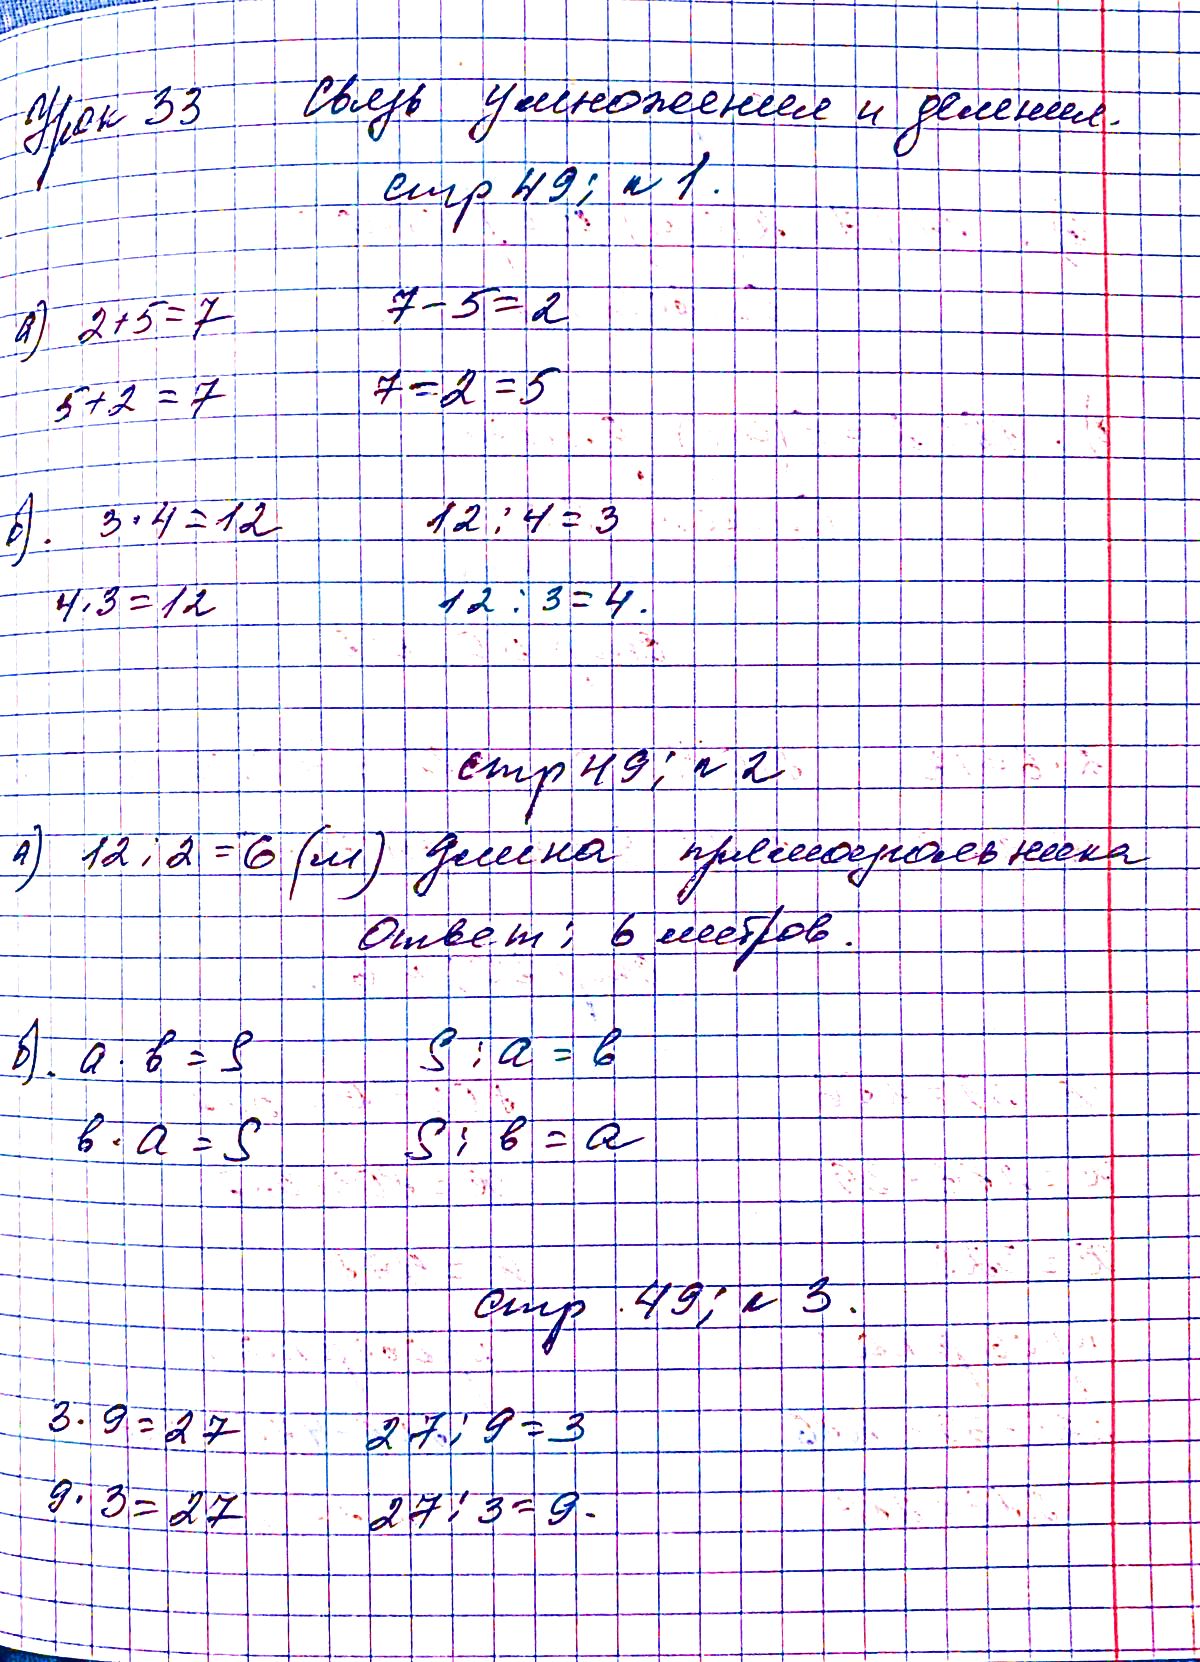 Урок 33 Связь умножения и деления.
стр 49; n 1.
а) 2+5=7 7-5=2
5+2=7 7-2=5
б). 3·4=12 12:4=3
4·3=12 12:3=4.
стр 49; n 2
а) 12:2=6 (м) длина прямоугольника
Ответ: 6 метров.
б). a·b=S S:a=b
b·a=S S:b=a
стр. 49; n 3.
3·9=27 27:9=3
9·3=27 27:3=9.